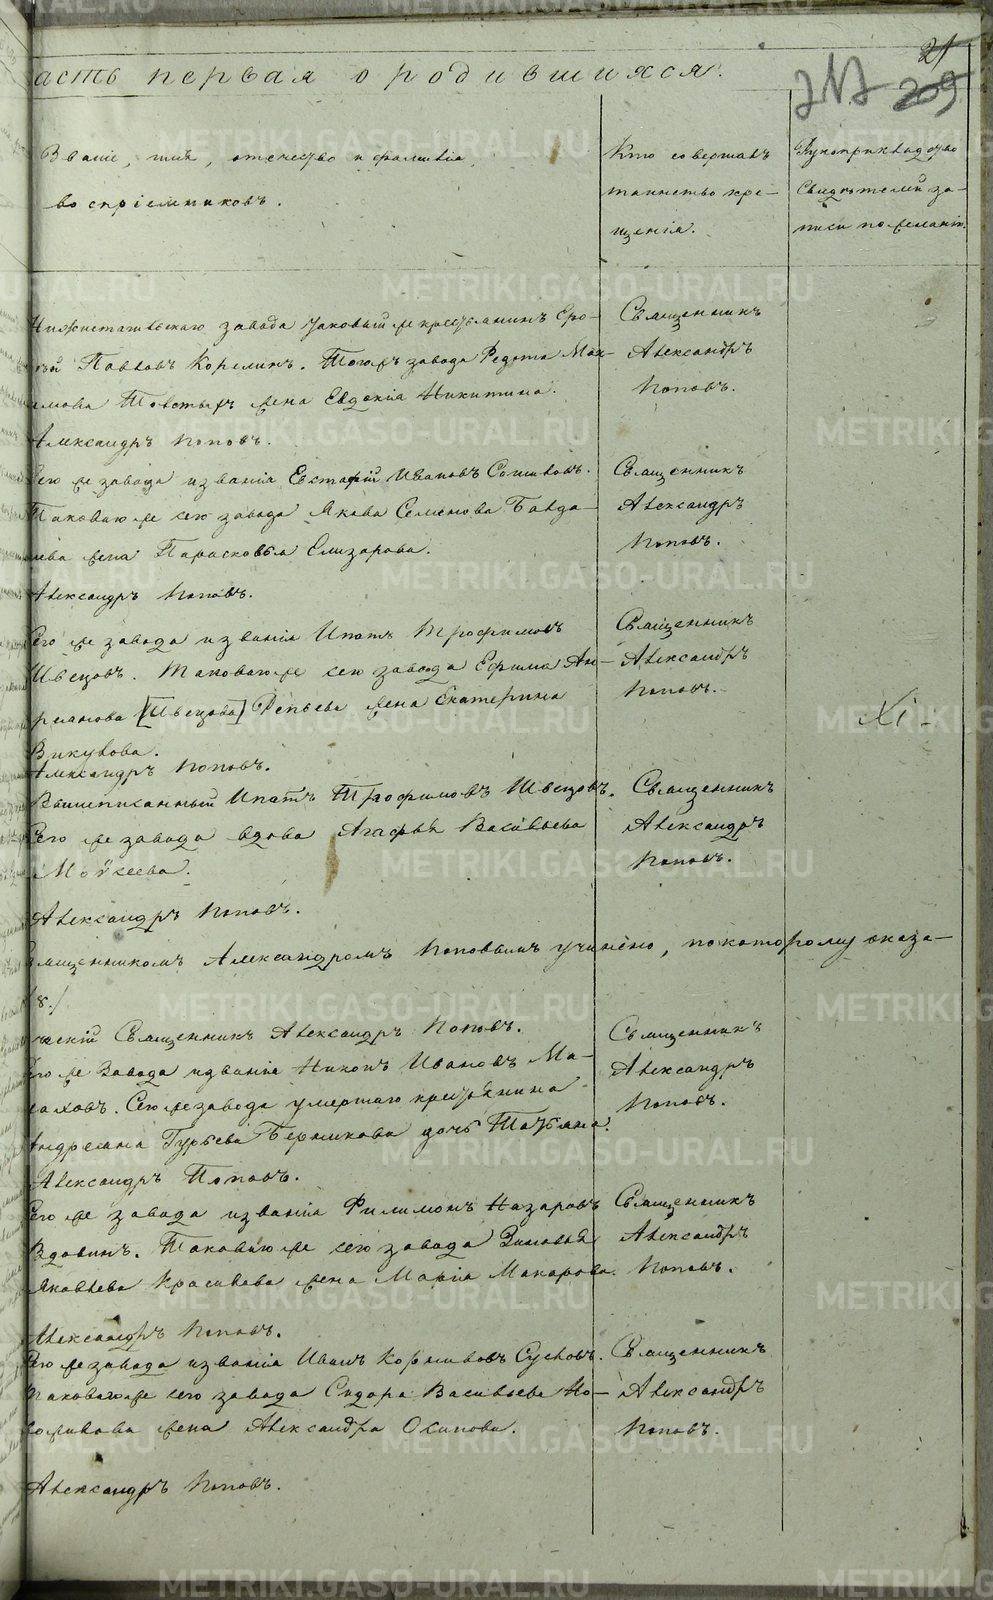 асть первая о родившихся.
21
217 209
Званіе, имя, отечество и фамилія
воспріемниковъ.
Кто совершалъ
таинство кре-
щенія.
Рукоприкладство
свидѣтелей за-
писи по желанію.
Нижнетагильскаго завода таковый же крестьянинъ
Павловъ Корелинъ. Тогожъ завода Федота Мак-
имова Толстыхъ жена Евдокія Никитина.
Священникъ
Александръ
Поповъ.
Александръ Поповъ.
Сего же завода и званія Евстафій Ивановъ
Таковаго же сего завода Якова Семенова Балда-
жена Парасковья Елизарова.
Священникъ
Александръ
Поповъ.
Александръ Поповъ.
Сего же завода и званія Ипатъ Трофимовъ
Швецовъ. Таковаго же сего завода Ефима Ан-
[Швецова] жена Екатерина
Викулова.
Священникъ
Александръ
Поповъ.
Александръ Поповъ.
Вышеписанный Ипатъ Трофимовъ Швецовъ.
Сего же завода вдова Агафья Васильева
Моисеева.
Священникъ
Александръ
Поповъ.
Александръ Поповъ.
вященникомъ Александромъ Поповымъ учинено, по которому оказа-
/8./
ческій Священникъ Александръ Поповъ.
Сего же Завода и званія Никонъ Ивановъ Ма-
Сего же завода умершаго крестьянина
Андреяна Гурьева Берникова дочь Татьяна.
Священникъ
Александръ
Поповъ.
Александръ Поповъ.
Сего же завода и званія Филимонъ Назаровъ
Вдовинъ. Таковаго же сего завода Зиновья
Яковлева Красикова жена Марія Макарова.
Священникъ
Александръ
Поповъ.
Александръ Поповъ.
Сего же завода и званія Иванъ Корниловъ Сусловъ.
Таковаго же сего завода Сидора Васильева Но-
жена Александра Осипова.
Священникъ
Александръ
Поповъ.
Александръ Поповъ.
METRIKI.GASO-URAL.RU